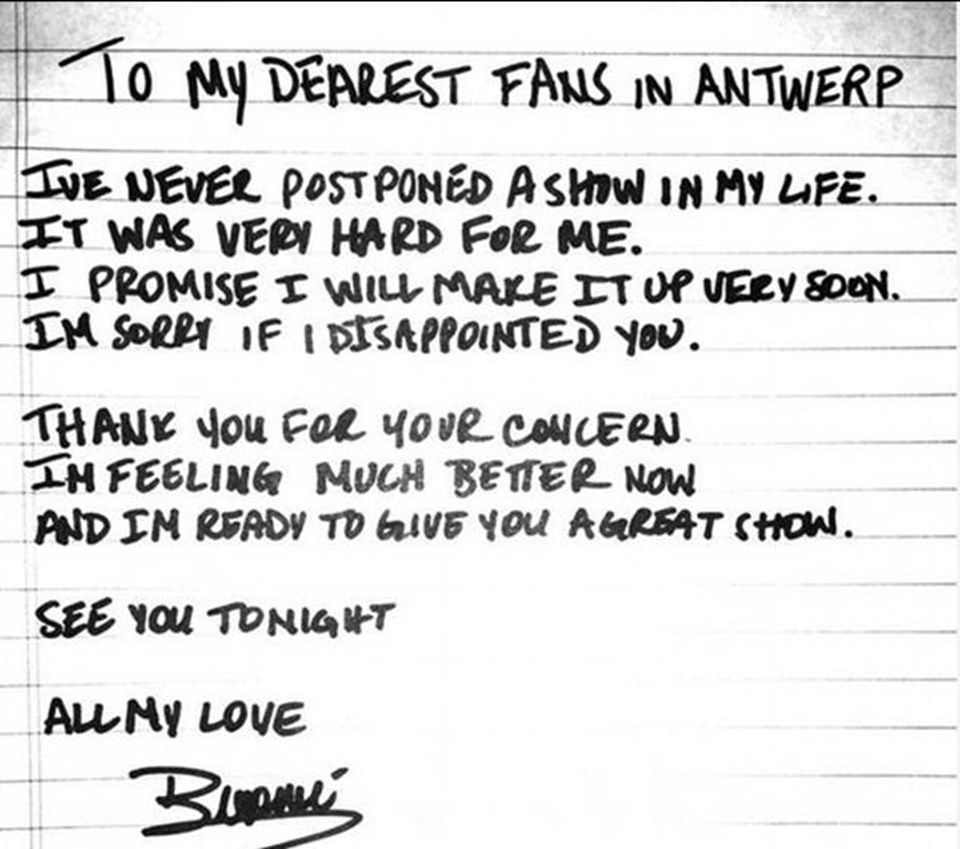 TO MY DEAREST FANS IN ANTWERP
IVE NEVER POSTPONED A SHOW IN MY LIFE.
IT WAS VERY HARD FOR ME.
I PROMISE I WILL MAKE IT UP VERY SOON.
IM SORRY IF I DISAPPOINTED YOU.
THANK YOU FOR YOUR CONCERN.
IM FEELING MUCH BETTER NOW
AND IM READY TO GIVE YOU A GREAT SHOW.
SEE YOU TONIGHT
ALL MY LOVE
Beyoncé